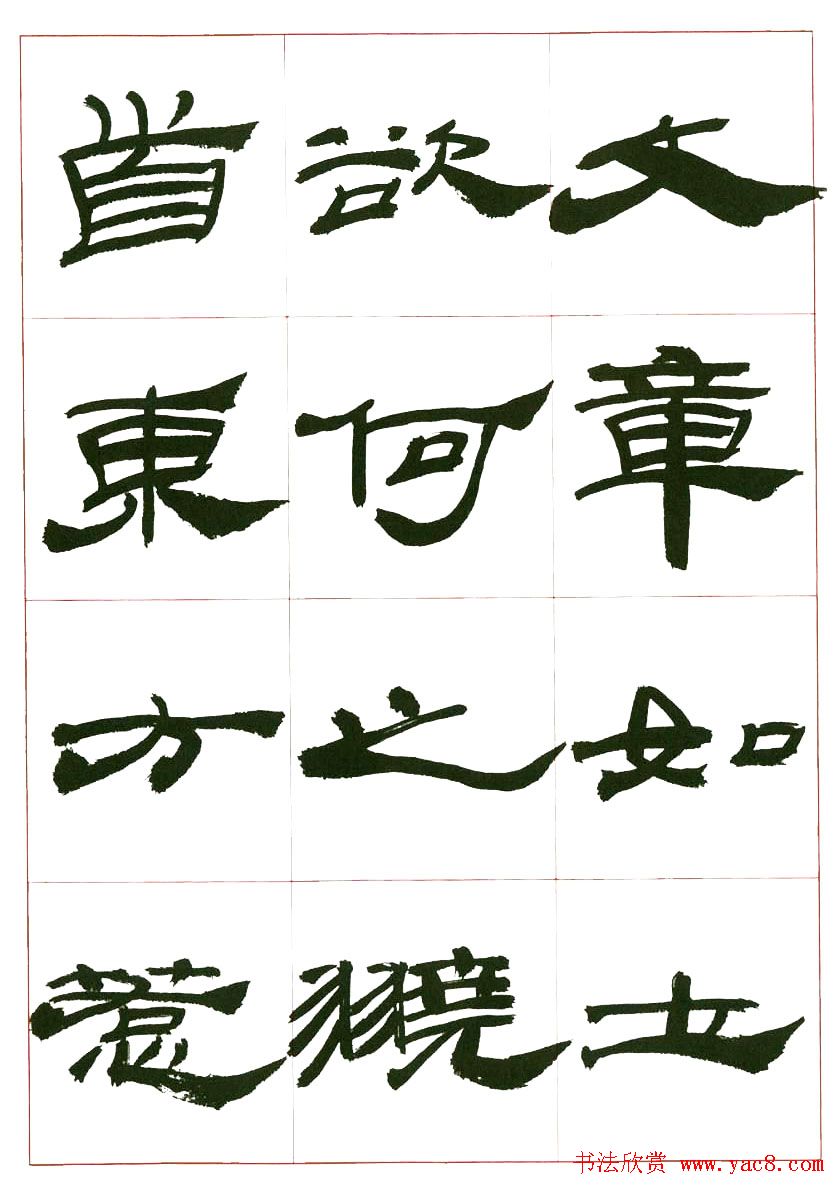 文章如土
欲何之翹
首東方惹
书法欣赏 www.yac8.com